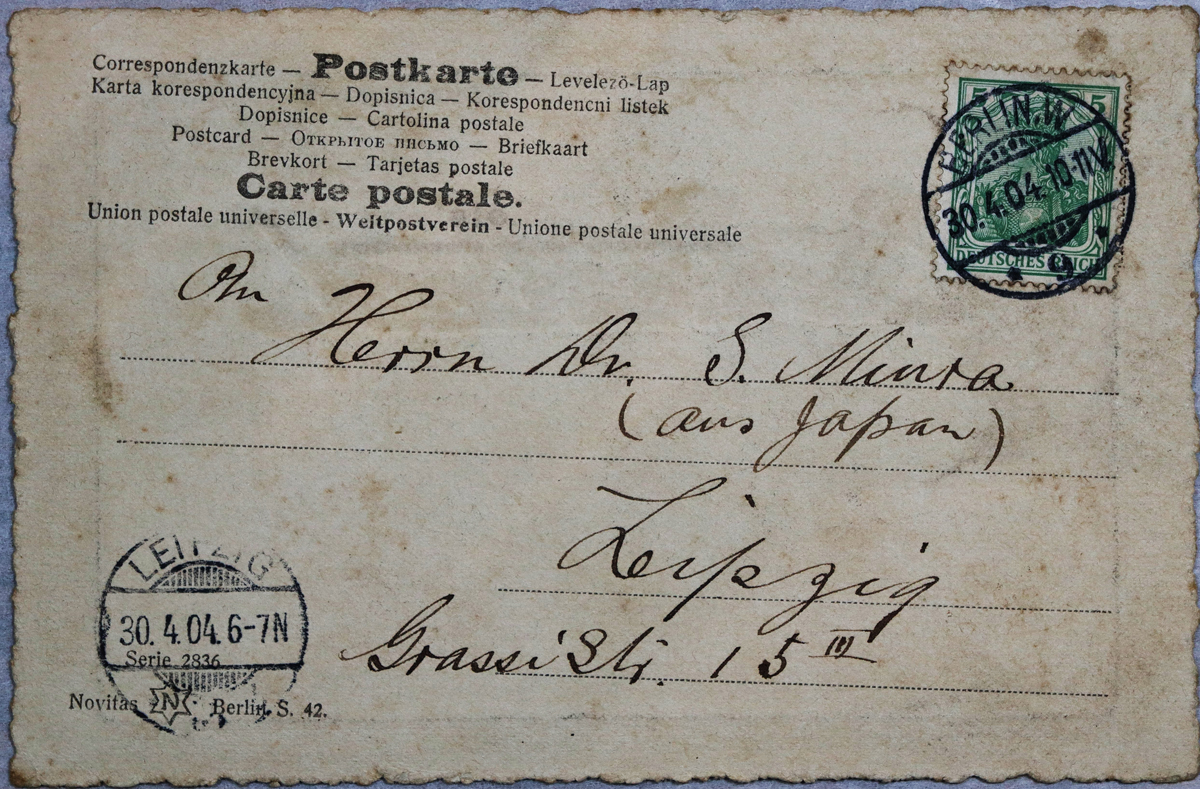 Correspondenzkarte — Postkarte — Levelező-Lap
Karta korespondencyjna — Dopisnica — Korespondencni listek
Dopisnice — Cartolina postale
Postcard — Открытое письмо — Briefkaart
Brevkort — Tarjetas postale
Carte postale.
Union postale universelle - Weltpostverein - Unione postale universale
5 5
BERLIN.W
30.4.04.10-11V.
DEUTSCHES REICH
* 9 *
An
Herrn Dr. S. Miura
(aus Japan)
Leipzig
Grassi Str. 15 III
LEIPZIG
30.4.04.6-7N
Serie 2836
Novitas N Berlin S. 42.